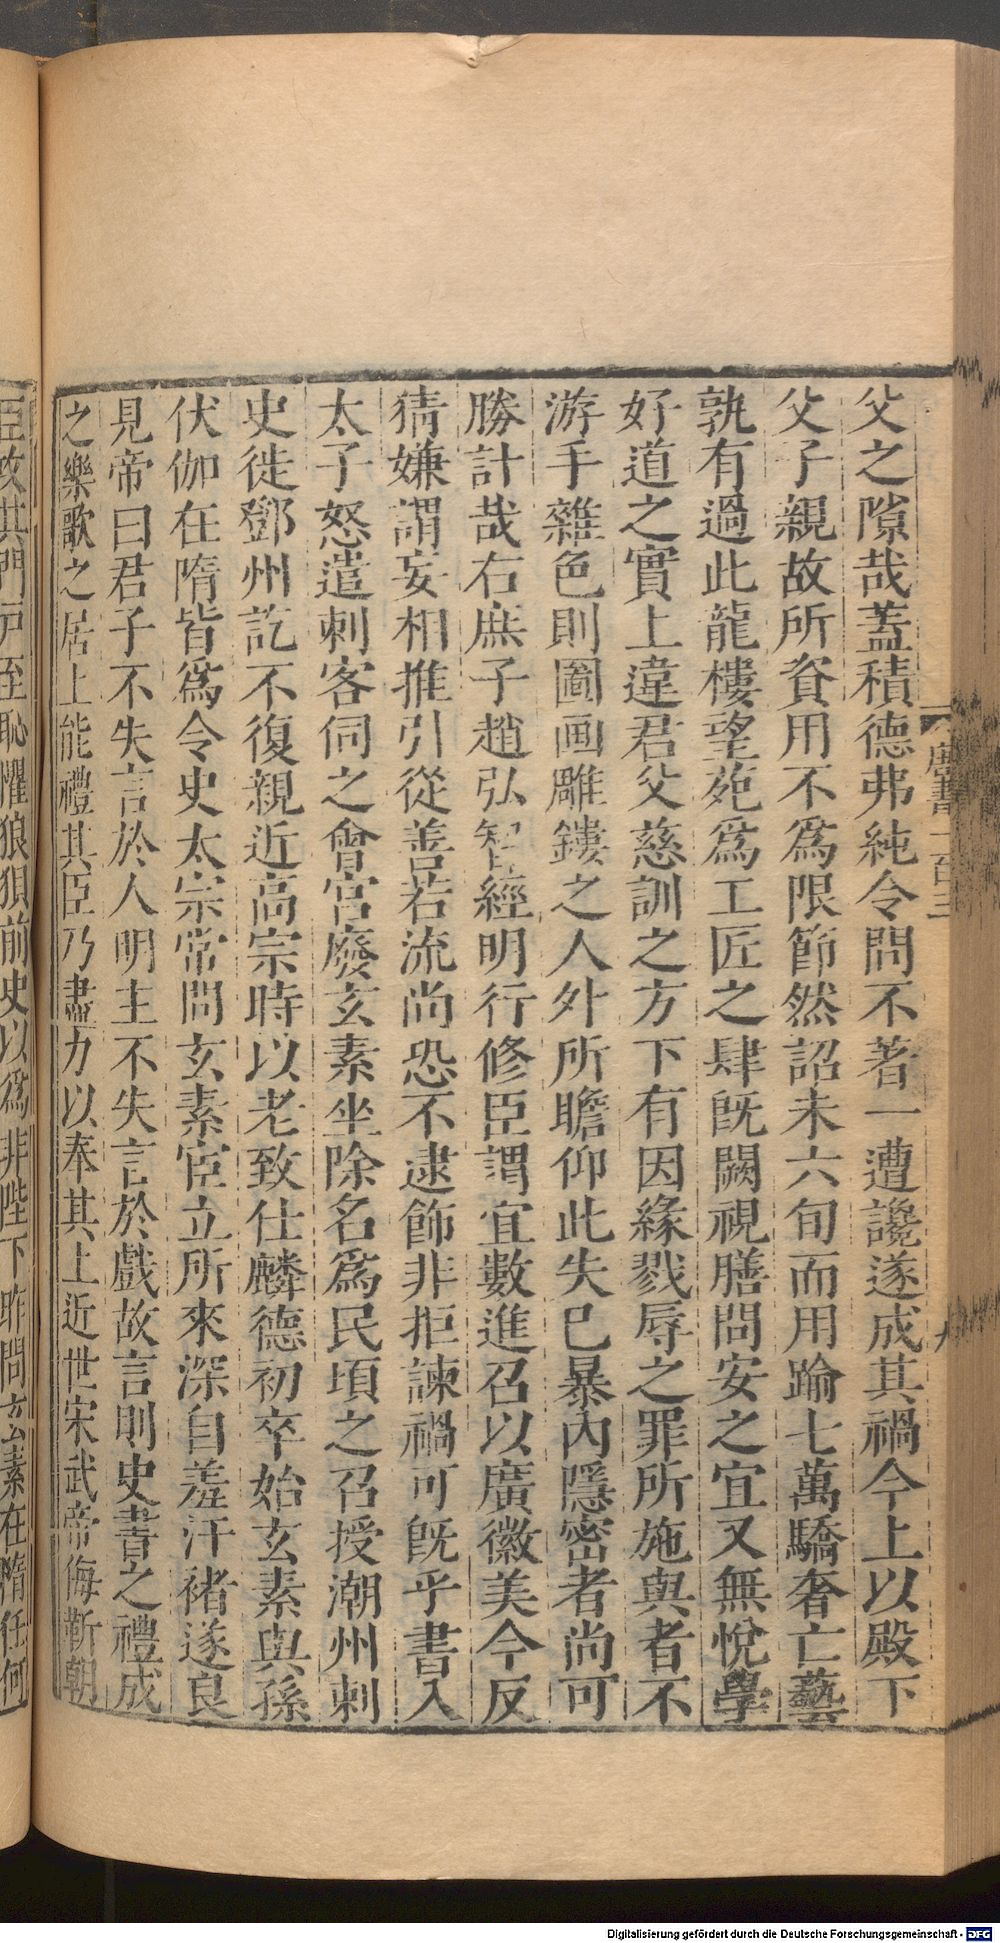 父之隙哉蓋積德弗純令問不著一遭讒遂成其禍今上以殿下
父子親故所資用不為限節然詔未六旬而用踰七萬驕奢亡藝
孰有過此龍樓望苑為工匠之肆旣闕視膳問安之宜又無悅學
好道之實上違君父慈訓之方下有因緣戮辱之罪所施與者不
游手雜色則圖画雕鏤之人外所瞻仰此失已暴內隱密者尚可
勝計哉右庶子趙弘智經明行修臣謂宜數進召以廣徽美今反
猜嫌謂妄相推引從善若流尚恐不逮飾非拒諫禍可旣乎書入
太子怒遣刺客伺之會宮廢玄素坐除名為民頃之召授潮州刺
史徙鄧州訖不復親近高宗時以老致仕麟德初卒始玄素與孫
伏伽在隋皆為令史太宗常問玄素宦立所來深自羞汗褚遂良
見帝曰君子不失言於人明主不失言於戲故言則史書之禮成
之樂歌之居上能禮其臣乃盡力以奉其上近世宋武帝侮靳朝
臣攻其門戶至恥懼狼狽前史以為非陛下昨問玄素在隋任何
唐書一百三
九
Digitalisierung gefördert durch die Deutsche Forschungsgemeinschaft - DFG